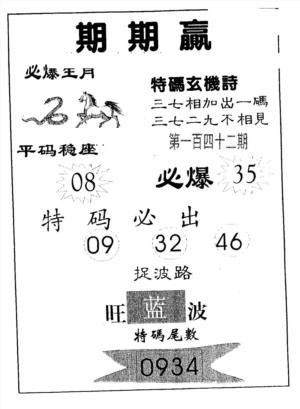 期期贏
必爆王月
特碼玄機詩
三七相加出一碼
三七二九不相見
平码稳座
第一百四十二期
08
必爆 35
特码必出
09 32 46
捉波路
旺 蓝 波
特碼尾數
0934